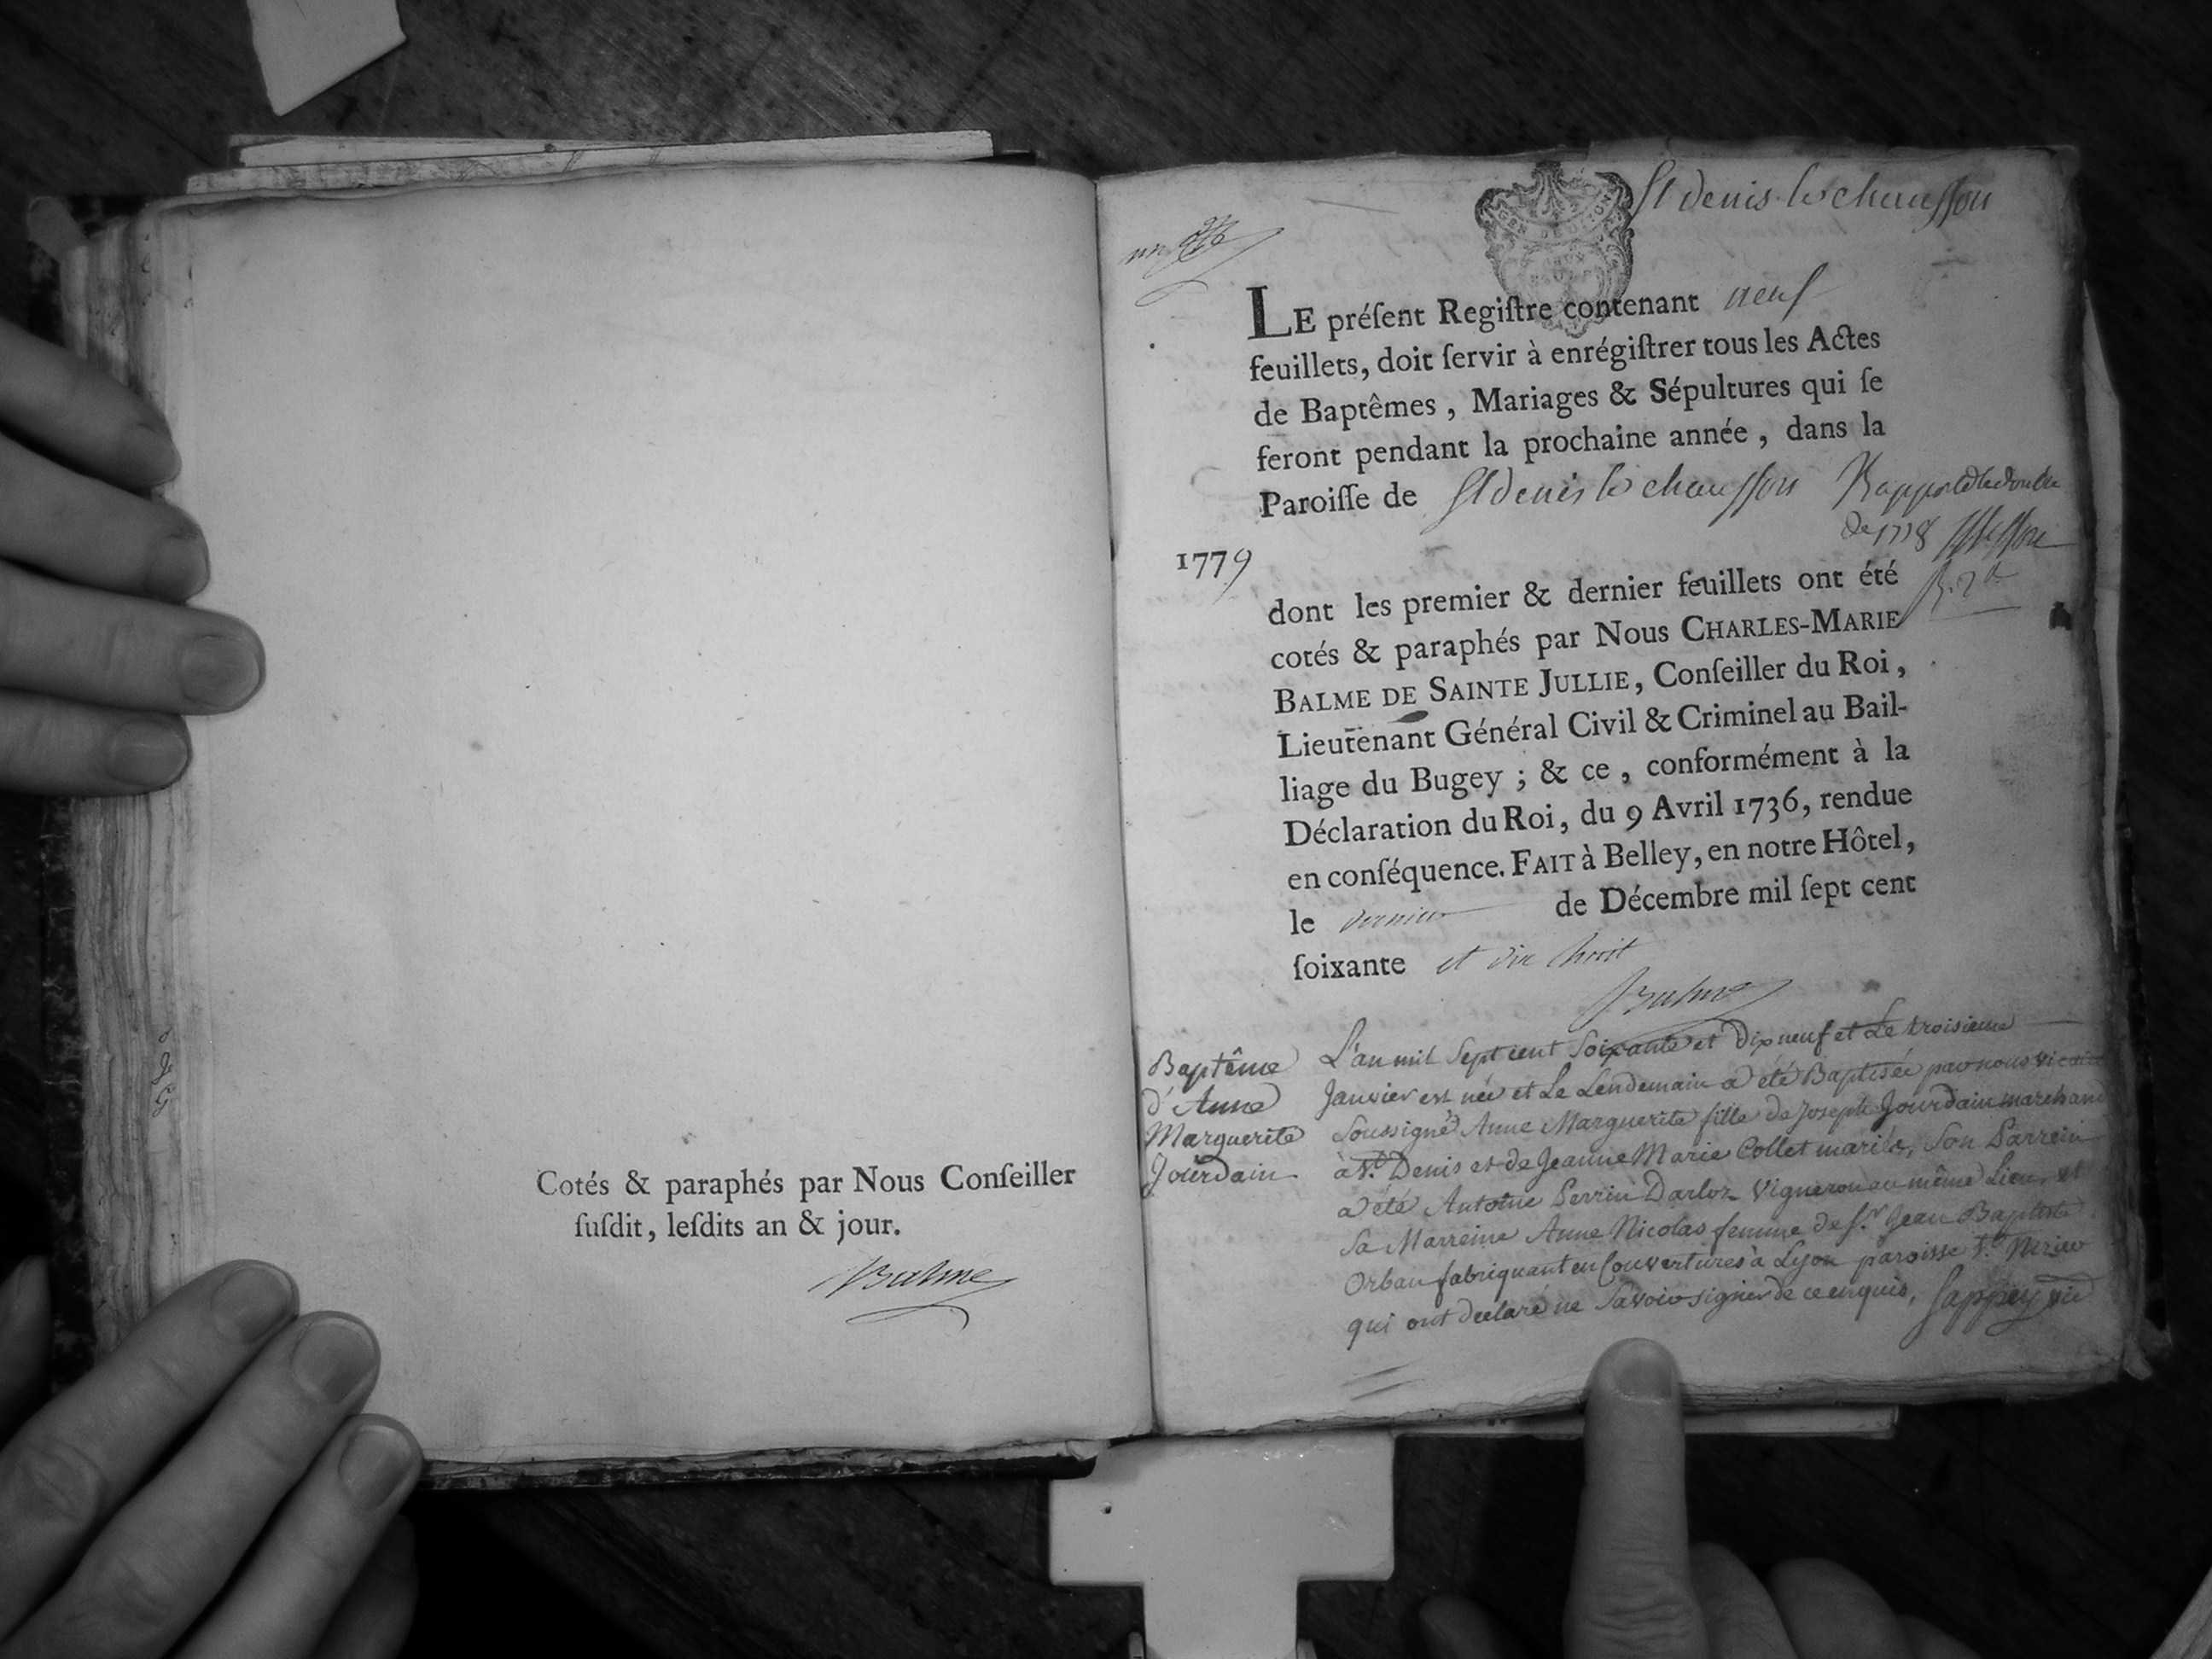 Cotés & paraphés par Nous Conſeiller
ſuſdit, leſdits an & jour.
Balme
St denis le chausson
LE préſent Regiſtre contenant neuf
feuillets, doit ſervir à enrégiſtrer tous les Actes
de Baptêmes, Mariages & Sépultures qui ſe
feront pendant la prochaine année, dans la
Paroiſſe de St denis le chausson
de 1778
1779
dont les premier & dernier feuillets ont été
cotés & paraphés par Nous CHARLES-MARIE
BALME DE SAINTE JULLIE, Conſeiller du Roi,
Lieutenant Général Civil & Criminel au Bail-
liage du Bugey; & ce, conformément à la
Déclaration du Roi, du 9 Avril 1736, rendue
en conſéquence. FAIT à Belley, en notre Hôtel,
le dernier de Décembre mil ſept cent
ſoixante et dix huit
Balme
Baptême
d'Anne
Marguerite
Jourdain
L'an mil Sept cent Soixante et Dix neuf et Le troisieme
Janvier est née et Le Lendemain a été Baptisée par nous vicaire
Soussigné Anne Marguerite fille de Joseph Jourdain marchand
à St Denis et de Jeanne Marie Collet mariés, Son Parrein
a été Antoine Perrin Darloz Vigneron au même Lieu, et
Sa Marreine Anne Nicolas femme de Sr Jean Baptiste
Orban fabriquant en Couvertures à Lyon paroisse St Nizier
qui ont declaré ne Savoir signer de ce enquis, Sappey vic